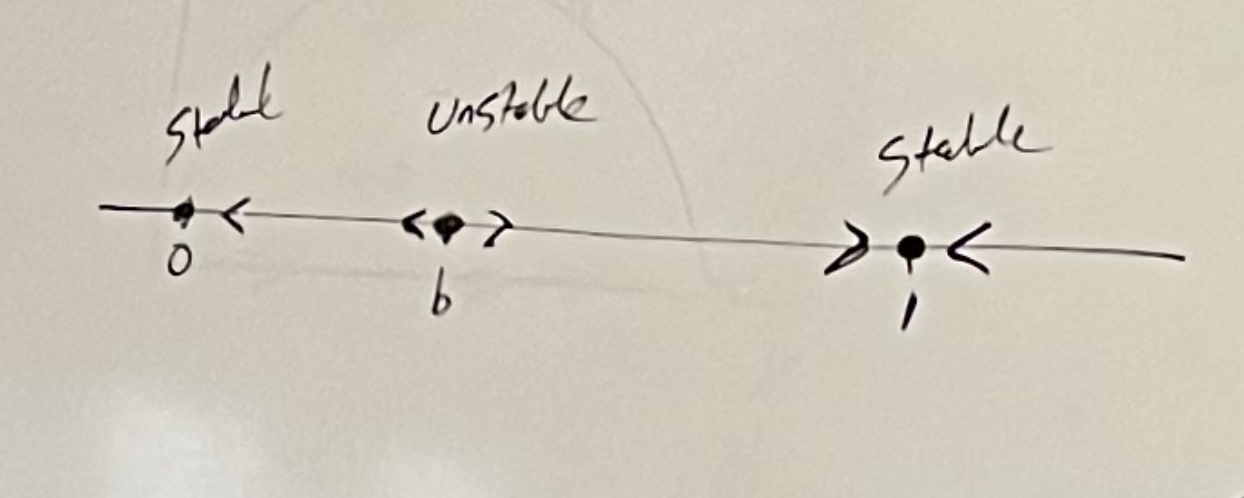 Stable
Unstable
Stable
0
b
1